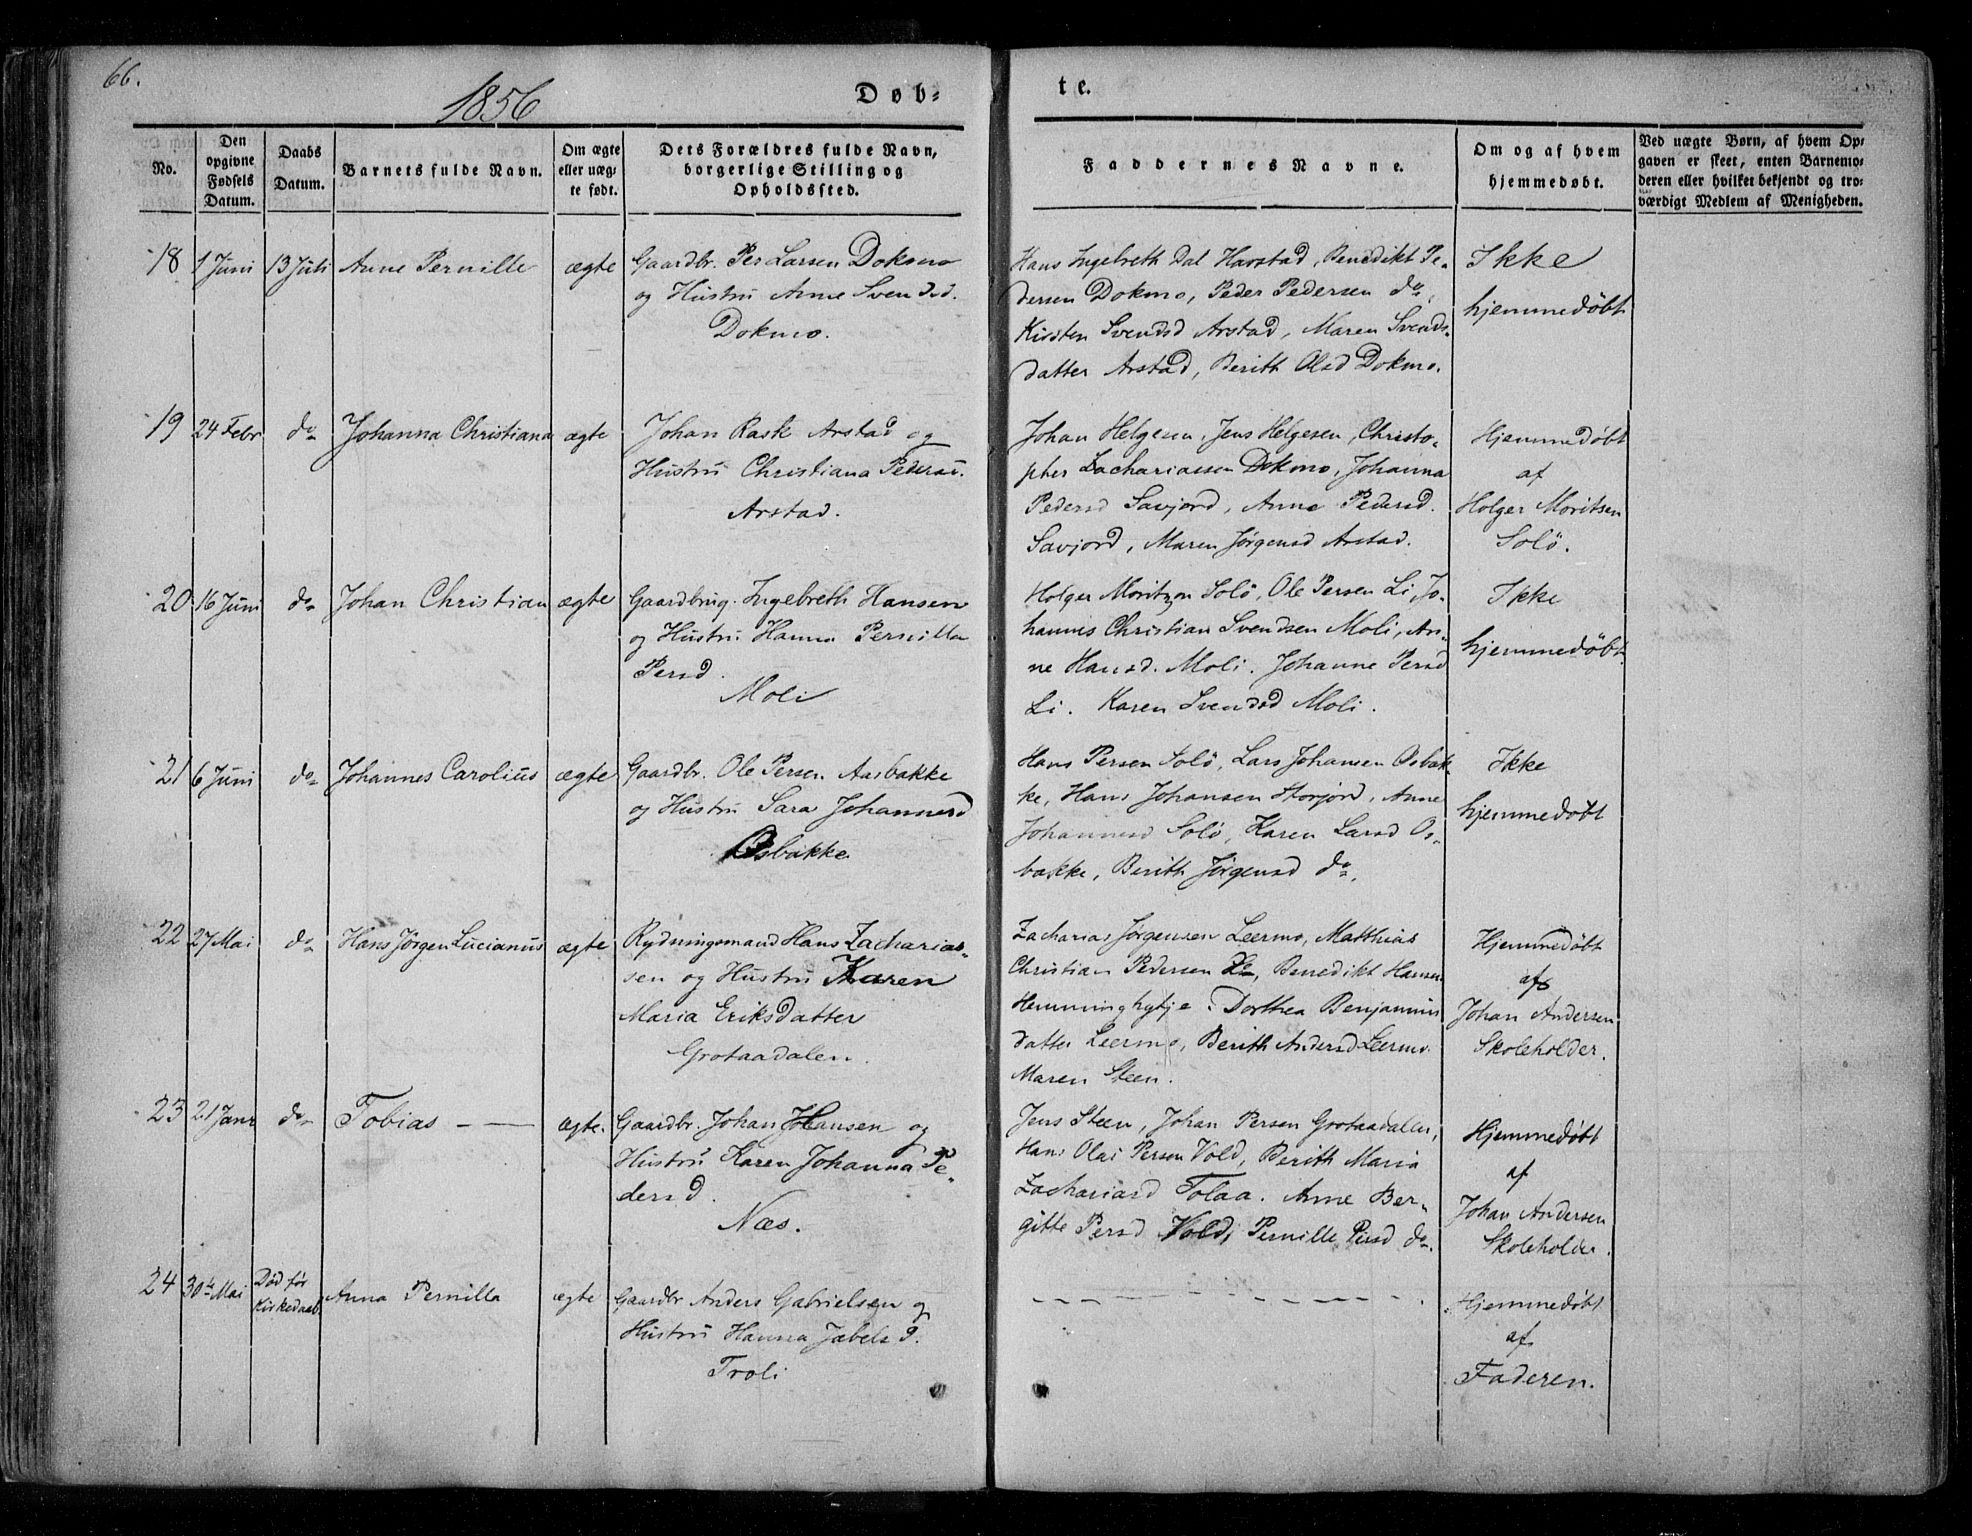 66.
1856
Døb-
te.
No.
Den opgivne Fødsels Datum.
Daabs Datum.
Barnets fulde Navn.
Om ægte eller uægte født.
Dets Forældres fulde Navn, borgerlige Stilling og Opholdssted.
Faddernes Navne.
Om og af hvem hjemmedøbt.
Ved uægte Børn, af hvem Op-
gaven er skeet, enten Barnemo-
deren eller hvilket bekjendt og tro-
værdigt Medlem af Menigheden.
18 1 Juni 13 Juli Anne Pernille ægte
Gaardbr. Per Larsen Dokmo
og Hustru Anne Svendsd.
Dokmo.
Hans Ingebreth Dal Harstad, Benedikt Pe-
dersen Dokmo, Peder Pedersen do,
Kirsten Svendsd Arstad, Maren Svends-
datter Arstad, Berith Olsd Dokmo.
Ikke
hjemmedøbt
19 24 Febr do Johanna Christiana ægte
Johan Rask Arstad og
Hustru Christiana Pedersd.
Arstad.
Johan Helgesen, Jens Helgesen, Christo-
pher Zachariassen Dokmo, Johanna
Pedersd Savjord, Anne Pedersd.
Savjord, Maren Jørgensd Arstad.
Hjemmedøbt
af
Holger Moritsen
Solö.
20 16 Juni do Johan Christian ægte
Gaardbrug. Ingebreth Hansen
og Hustru Hanna Pernilla
Persd.
Moli
Holger Moritzon Solö, Ole Persen Li, Jo-
hannes Christian Svendsen Moli, An-
ne Hansd. Moli. Johanne Persd
Li. Karen Svendsd Moli.
Ikke
hjemmedøbt
21 6 Juni do Johannes Carolius ægte
Gaardbr. Ole Persen Aasbakke
og Hustru Sara Johannesd
Osbakke
Hans Persen Solö, Lars Johansen Osbak-
ke, Hans Johansen Storjord, Anne
Johannesd Solö, Karen Larsd Os-
bakke, Berith Jørgensd do.
Ikke
hjemmedøbt
22 27 Mai do Hans Jørgen Lucianus ægte
Rydningsmand Hans Zacharias-
sen og Hustru Karen
Maria Eriksdatter
Grotaadalen
Zacharias Jørgensen Leermo, Matthias
Christian Pedersen do, Benedikt Hansen
Hemminghytje. Dorthea Benjamins
datter Leermo, Berith Andersd Leermo.
Maren Steen.
Hjemmedøbt
af
Johan Andersen
Skoleholder.
23 21 Janr do Tobias ægte.
Gaardbr. Johan Hansen og
Hustru Karen Johanna Pe-
dersd.
Næs.
Jens Steen, Johan Persen Grotaadalen,
Hans Olai Persen Vold, Berith Maria
Zachariasd Tolaa. Anne Ber-
gitte Persd Vold, Pernille Persd do.
Hjemmedøbt
af
Johan Andersen
Skoleholder.
24 30te Mai Død før Kirkedaab Anna Pernilla ægte
Gaardbr Anders Gabrielsen og
Hustru Hanna Jabelsd.
Troli
Hjemmedøbt
af
Faderen.